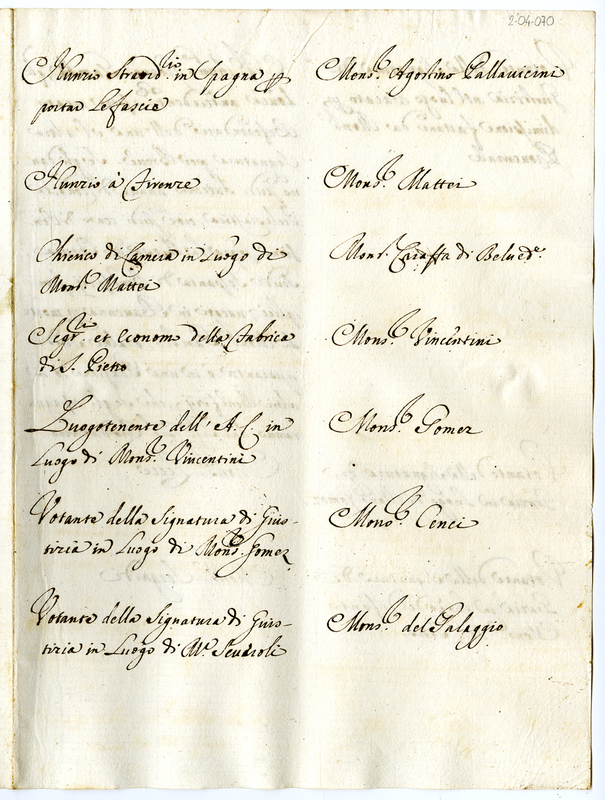 2-04-070
Nunzio Straord.rio in Spagna p
portar le fascie
Mons.r Agostino Pallavicini
Nunzio à Firenze
Mons.r Mattei
Chierico di Camera in Luogo di
Mons.r Mattei
Mons.r Caraffa di Belved.e
Segr.rio et Econom della Fabrica
di S. Pietro
Mons.r Vincentini
Luogotenente dell' A. C. in
Luogo di Mons.r Vincentini
Mons.r Gomez
Votante della Signatura di Gius-
tizia in Luogo di Mons.r Gomez
Mons.r Cenci
Votante della Signatura di Gius-
tizia in Luogo di M.r Severoli
Mons.r del Palaggio